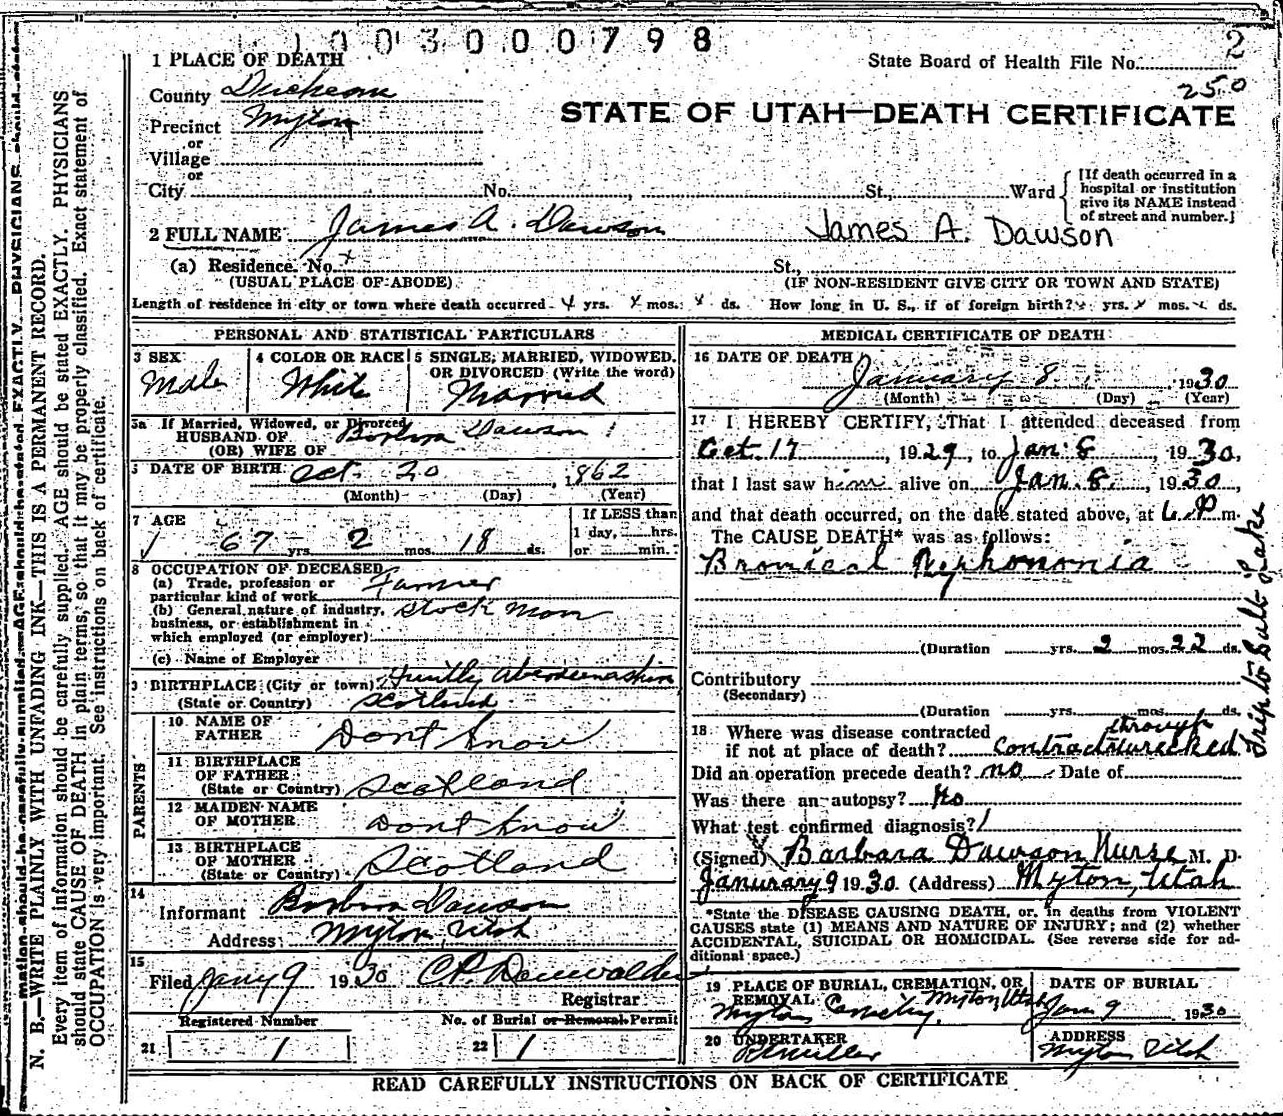 1003000798
2
1 PLACE OF DEATH
State Board of Health File No.
250
County Duchesne
STATE OF UTAH—DEATH CERTIFICATE
Precinct Myton
or
Village
or
City No. St. Ward
[If death occurred in a
hospital or institution
give its NAME instead
of street and number.]
2 FULL NAME James A. Dawson James A. Dawson
(a) Residence. No. x St.,
(USUAL PLACE OF ABODE) (IF NON-RESIDENT GIVE CITY OR TOWN AND STATE)
Length of residence in city or town where death occurred yrs. mos. ds. How long in U. S., if of foreign birth? yrs. mos. ds.
PERSONAL AND STATISTICAL PARTICULARS
3 SEX 4 COLOR OR RACE 5 SINGLE, MARRIED, WIDOWED,
OR DIVORCED (Write the word)
Male White Married
5a If Married, Widowed, or Divorced
HUSBAND OF Barbra Dawson
(OR) WIFE OF
DATE OF BIRTH Oct. 20, 1862
(Month) (Day) (Year)
7 AGE If LESS than
1 day, hrs.
67 yrs. 2 mos. 18 ds. or min.
8 OCCUPATION OF DECEASED
(a) Trade, profession or
particular kind of work Farmer
(b) General nature of industry, Stock Man
business, or establishment in
which employed (or employer)
(c) Name of Employer
9 BIRTHPLACE (City or town) Huntly Aberdeenashire
(State or Country) Scotland
PARENTS
10 NAME OF
FATHER Dont Know
11 BIRTHPLACE
OF FATHER
(State or Country) Scotland
12 MAIDEN NAME
OF MOTHER Dont Know
13 BIRTHPLACE
OF MOTHER
(State or Country) Scotland
14
Informant Barbra Dawson
Address Myton, Utah
15
Filed Jany 9 1930
Registrar
Registered Number No. of Burial or Removal Permit
21 1 22 1
MEDICAL CERTIFICATE OF DEATH
16 DATE OF DEATH
January 8, 1930
(Month) (Day) (Year)
17 I HEREBY CERTIFY, That I attended deceased from
Oct. 17, 1929, to Jan. 8, 1930,
that I last saw him alive on Jan. 8, 1930,
and that death occurred, on the date stated above, at 6 P m.
The CAUSE DEATH* was as follows:
Bronical Nephononia
(Duration yrs. 2 mos. 22 ds.
Contributory
(Secondary)
(Duration yrs. mos. ds.
18 Where was disease contracted through
if not at place of death?
Trip to Salt Lake
Did an operation precede death? no Date of
Was there an autopsy? No
What test confirmed diagnosis?
(Signed) Barbara Dawson Nurse M. D.
Janurary 9 1930 (Address) Myton, Utah
*State the DISEASE CAUSING DEATH, or, in deaths from VIOLENT
CAUSES state (1) MEANS AND NATURE OF INJURY; and (2) whether
ACCIDENTAL, SUICIDAL OR HOMICIDAL. (See reverse side for ad-
ditional space.)
19 PLACE OF BURIAL, CREMATION, OR DATE OF BURIAL
REMOVAL Myton Utah
Myton Jan 9 1930
20 UNDERTAKER ADDRESS
Myton Utah
READ CAREFULLY INSTRUCTIONS ON BACK OF CERTIFICATE
N. B.—WRITE PLAINLY WITH UNFADING INK—THIS IS A PERMANENT RECORD.
Every item of information should be carefully supplied. AGE should be stated EXACTLY. PHYSICIANS
should state CAUSE OF DEATH in plain terms, so that it may be properly classified. Exact statement of
OCCUPATION is very important. See instructions on back of certificate.